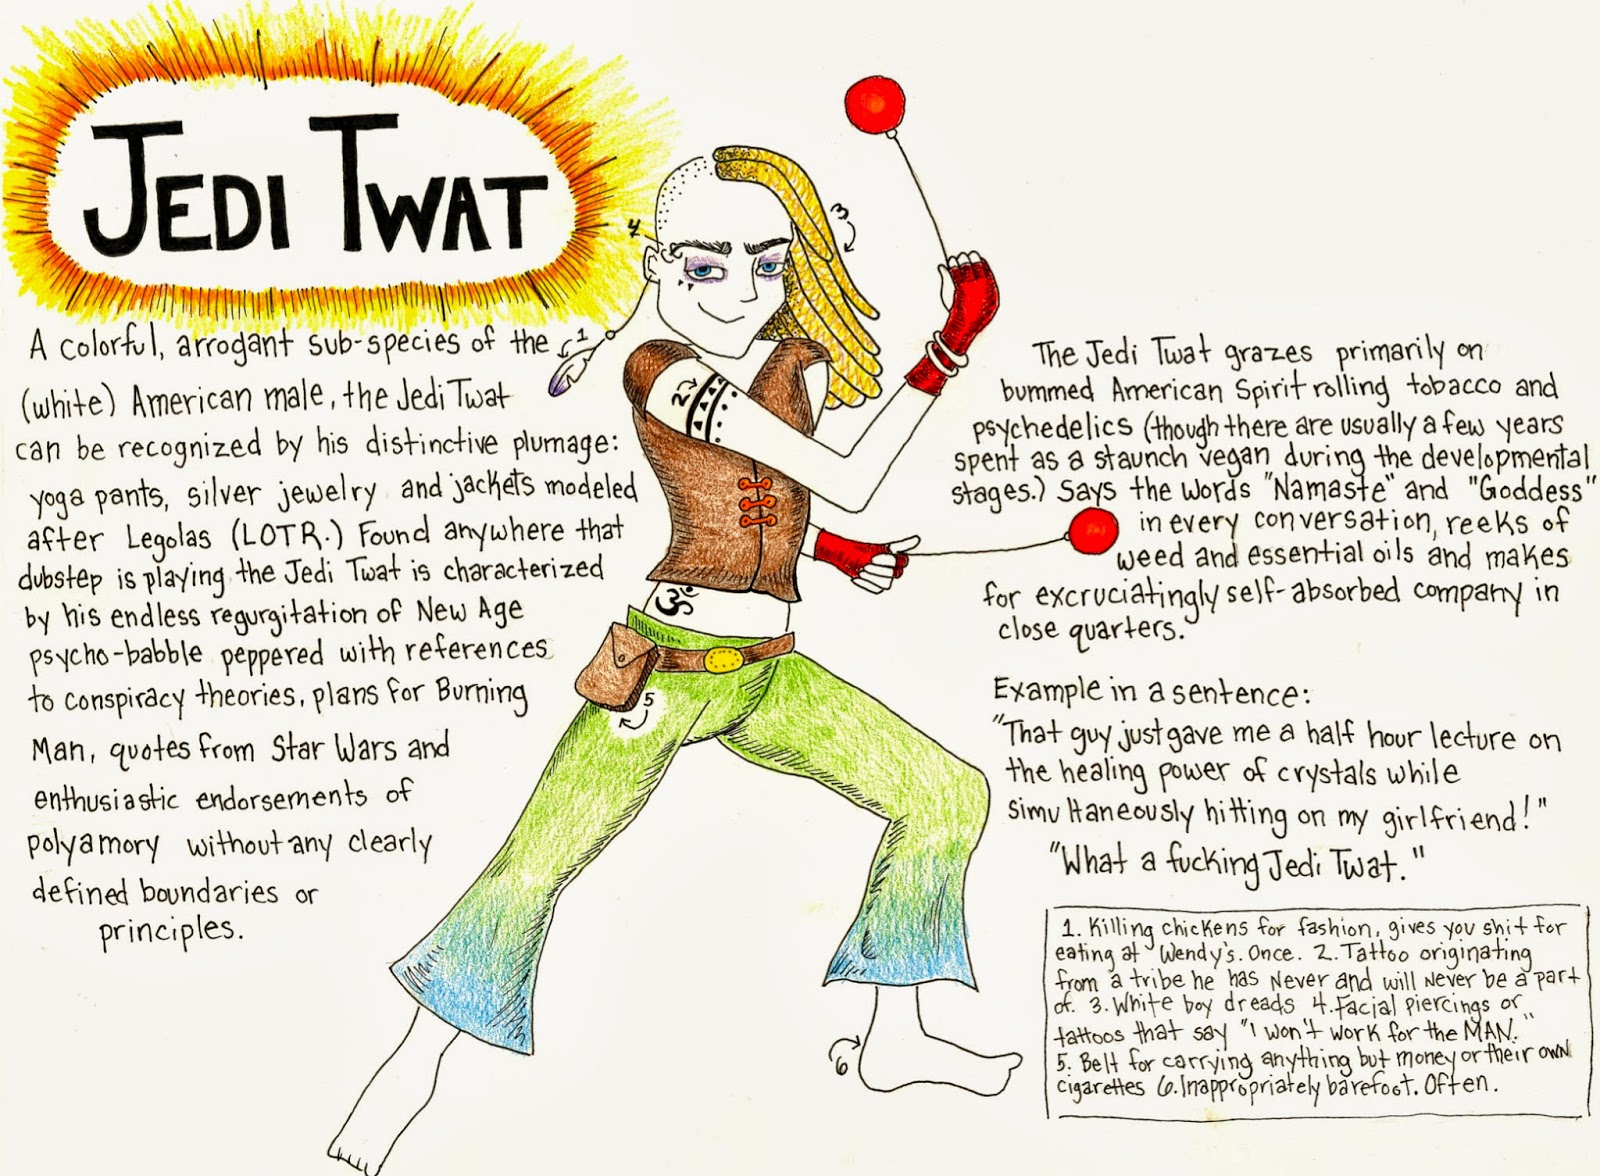 JEDI TWAT
A colorful, arrogant sub-species of the
(white) American male, the Jedi Twat
can be recognized by his distinctive plumage:
yoga pants, silver jewelry and jackets modeled
after Legolas (LOTR.) Found anywhere that
dubstep is playing the Jedi Twat is characterized
by his endless regurgitation of New Age
psycho-babble peppered with references
to conspiracy theories, plans for Burning
Man, quotes from Star Wars and
enthusiastic endorsements of
polyamory without any clearly
defined boundaries or
principles.
1
2
3
4
5
6
ॐ
The Jedi Twat grazes primarily on
bummed American Spirit rolling tobacco and
psychedelics (though there are usually a few years
spent as a staunch vegan during the developmental
stages.) Says the words "Namaste" and "Goddess"
in every conversation, reeks of
weed and essential oils and makes
for excruciatingly self-absorbed company in
close quarters.
Example in a sentence:
"That guy just gave me a half hour lecture on
the healing power of crystals while
simultaneously hitting on my girlfriend!"
"What a fucking Jedi Twat."
1. Killing chickens for fashion, gives you shit for
eating at Wendy's. Once. 2. Tattoo originating
from a tribe he has Never and will Never be a part
of. 3. White boy dreads 4. Facial piercings or
tattoos that say "I won't work for the MAN."
5. Belt for carrying anything but money or their own
cigarettes 6. Inappropriately barefoot. Often.